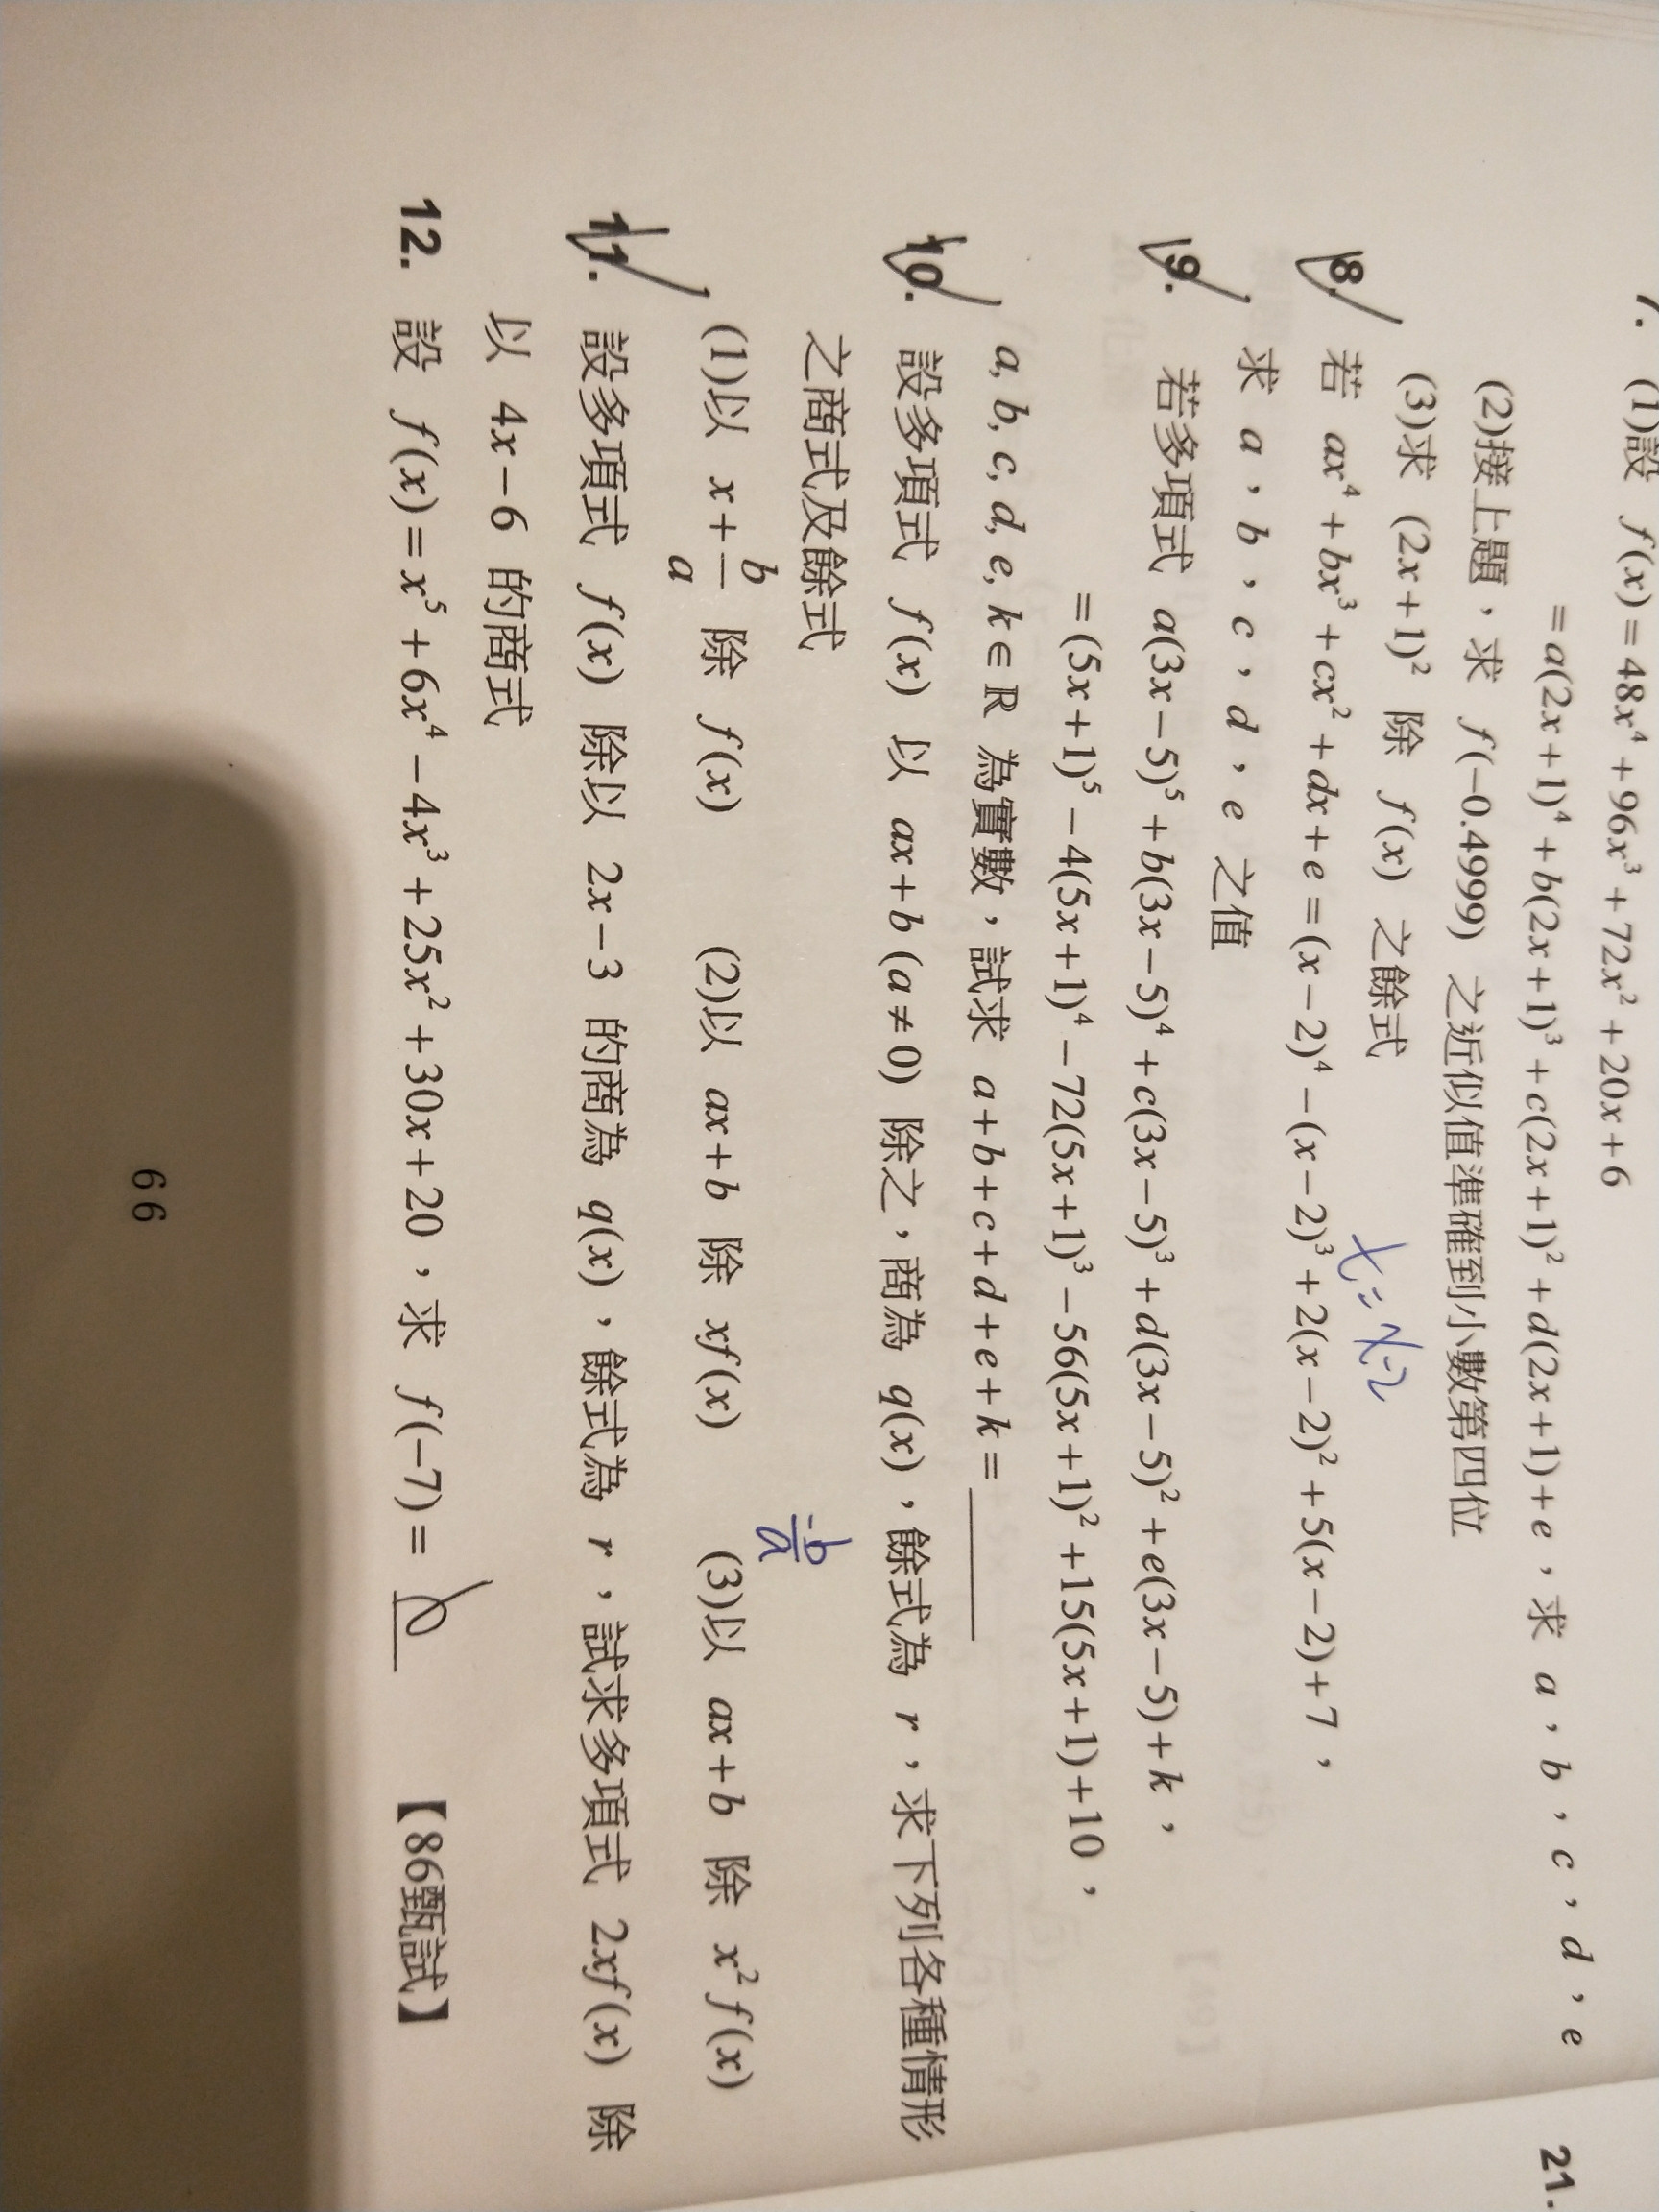 7. (1)設 f(x)=48x⁴+96x³+72x²+20x+6
=a(2x+1)⁴+b(2x+1)³+c(2x+1)²+d(2x+1)+e，求 a，b，c，d，e
(2)接上題，求 f(−0.4999) 之近似值準確到小數第四位
(3)求 (2x+1)² 除 f(x) 之餘式
x=x-2
8. 若 ax⁴+bx³+cx²+dx+e=(x−2)⁴−(x−2)³+2(x−2)²+5(x−2)+7，
求 a，b，c，d，e 之值
9. 若多項式 a(3x−5)⁵+b(3x−5)⁴+c(3x−5)³+d(3x−5)²+e(3x−5)+k，
=(5x+1)⁵−4(5x+1)⁴−72(5x+1)³−56(5x+1)²+15(5x+1)+10，
a, b, c, d, e, k∈ℝ 為實數，試求 a+b+c+d+e+k=
10. 設多項式 f(x) 以 ax+b (a≠0) 除之，商為 q(x)，餘式為 r，求下列各種情形
之商式及餘式
-b/a
(1)以 x+b/a 除 f(x) (2)以 ax+b 除 xf(x) (3)以 ax+b 除 x²f(x)
11. 設多項式 f(x) 除以 2x−3 的商為 q(x)，餘式為 r，試求多項式 2xf(x) 除
以 4x−6 的商式
12. 設 f(x)=x⁵+6x⁴−4x³+25x²+30x+20，求 f(−7)=
【86甄試】
66
21.